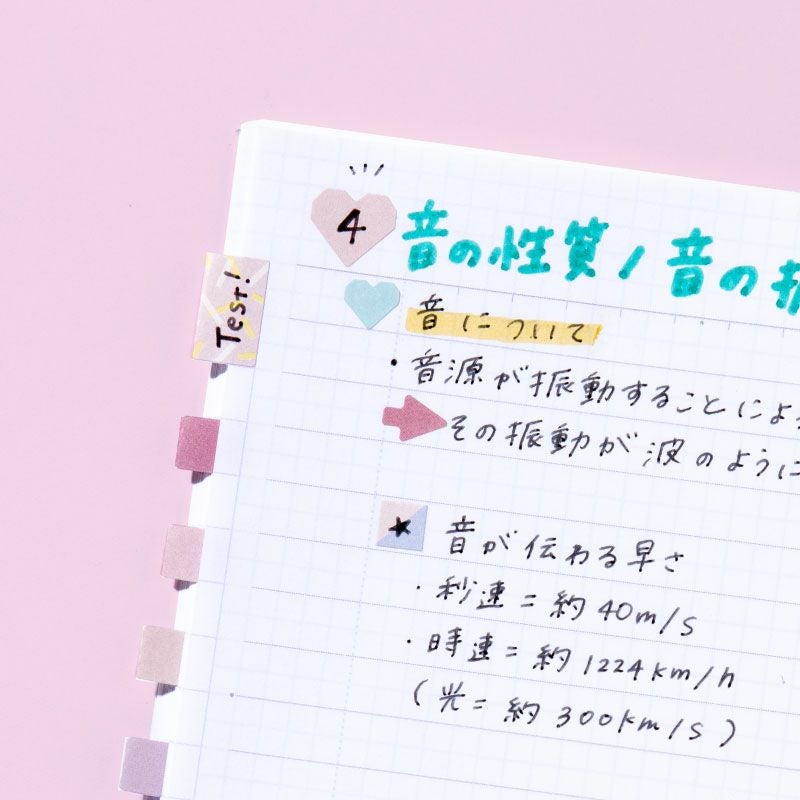 4 音の性質/音の振
Test!
音について
・音源が振動することによ
その振動が波のように
★ 音が伝わる早さ
・秒速=約40m/s
・時速=約1224km/h
(光=約300km/s)